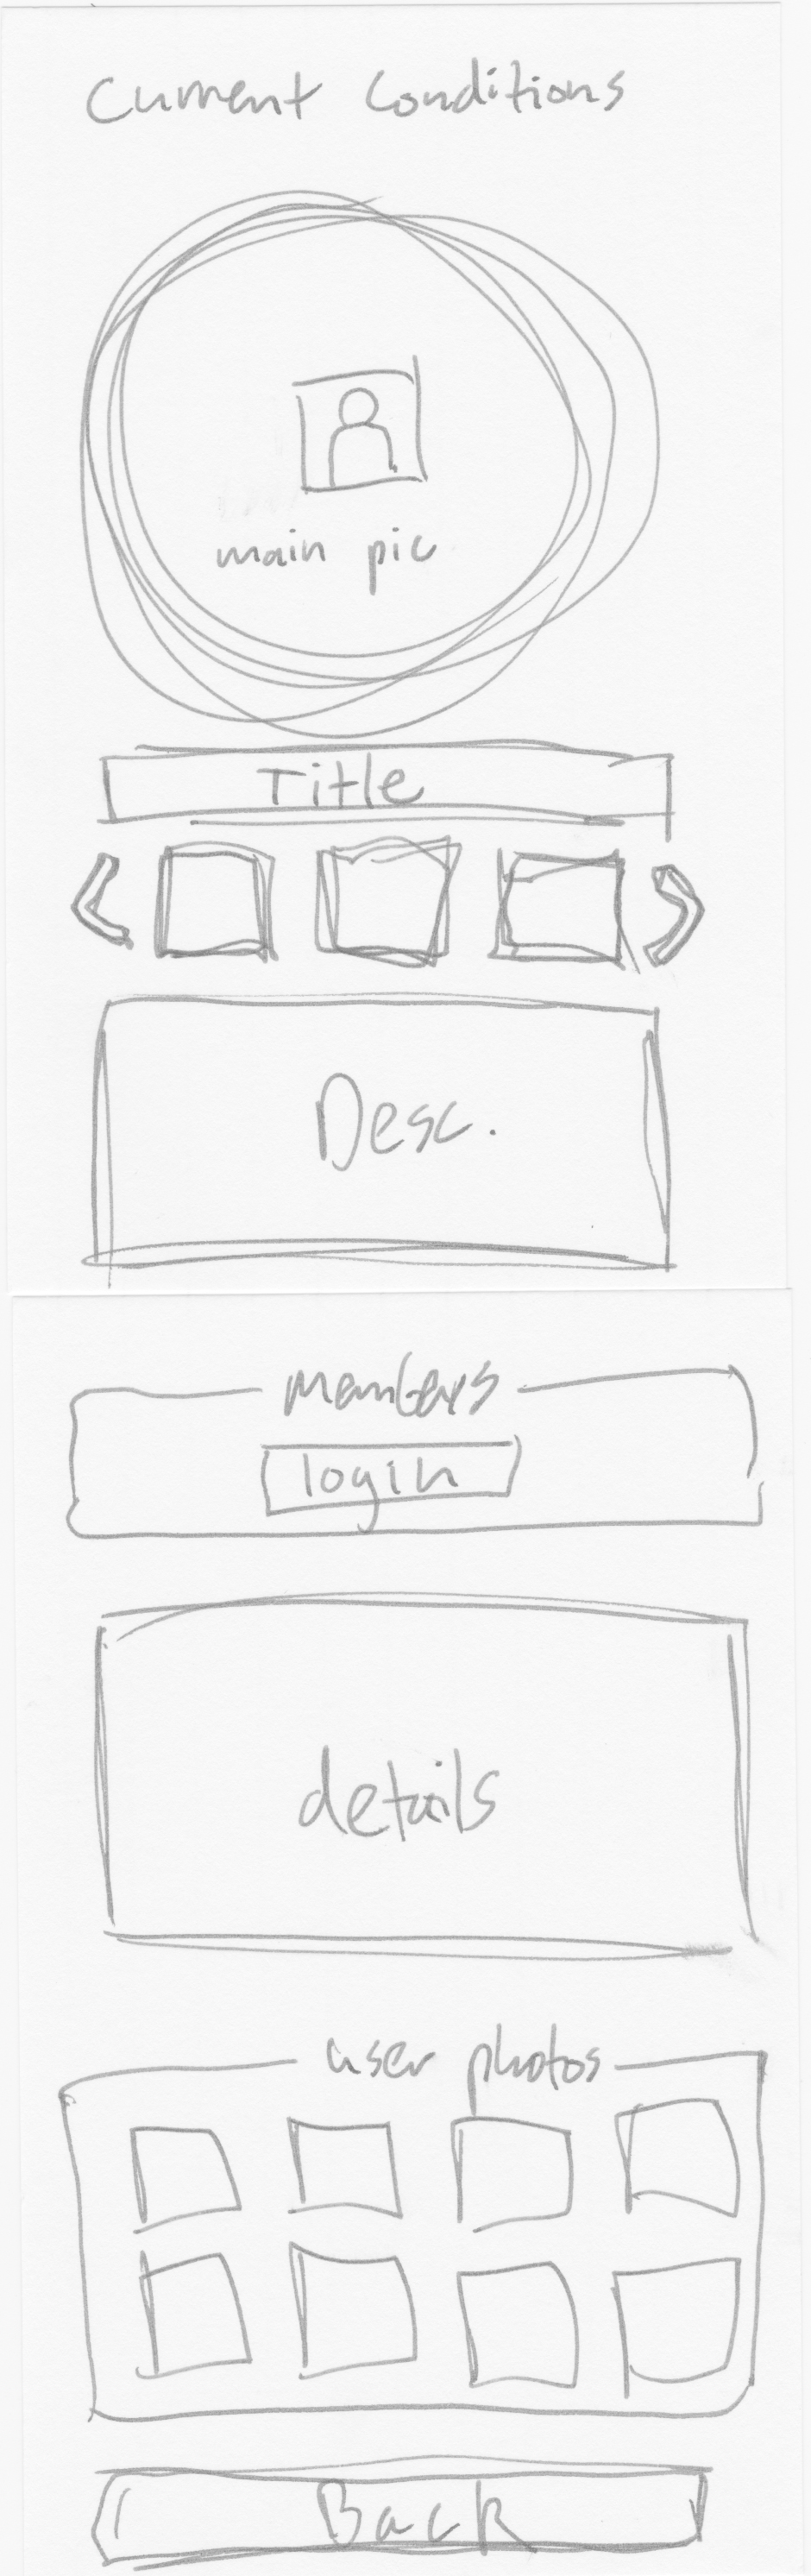 Current Conditions
main pic
Title
Desc.
members
login
details
user photos
Back